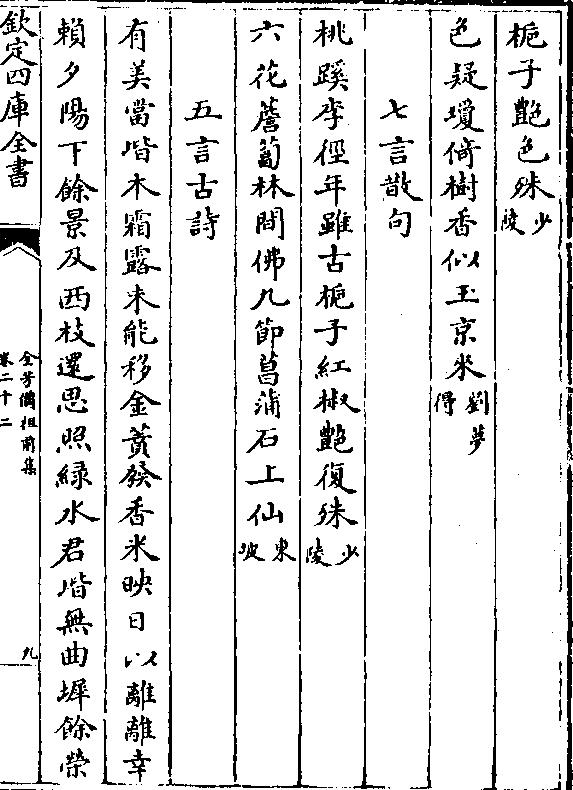 梔子艷色殊少陵
色疑瓊倚樹香似玉京來劉夢得
七言散句
桃蹊李徑年雖古梔子紅椒艷復殊少陵
六花薝蔔林間佛九節菖蒲石上仙東坡
五言古詩
有美當堦木霜露未能移金蕡發香米映日以離離幸
賴夕陽下餘景及西枝還思照緑水君堦無曲墀餘榮
欽定四庫全書
全芳備祖前集
卷二十二
九